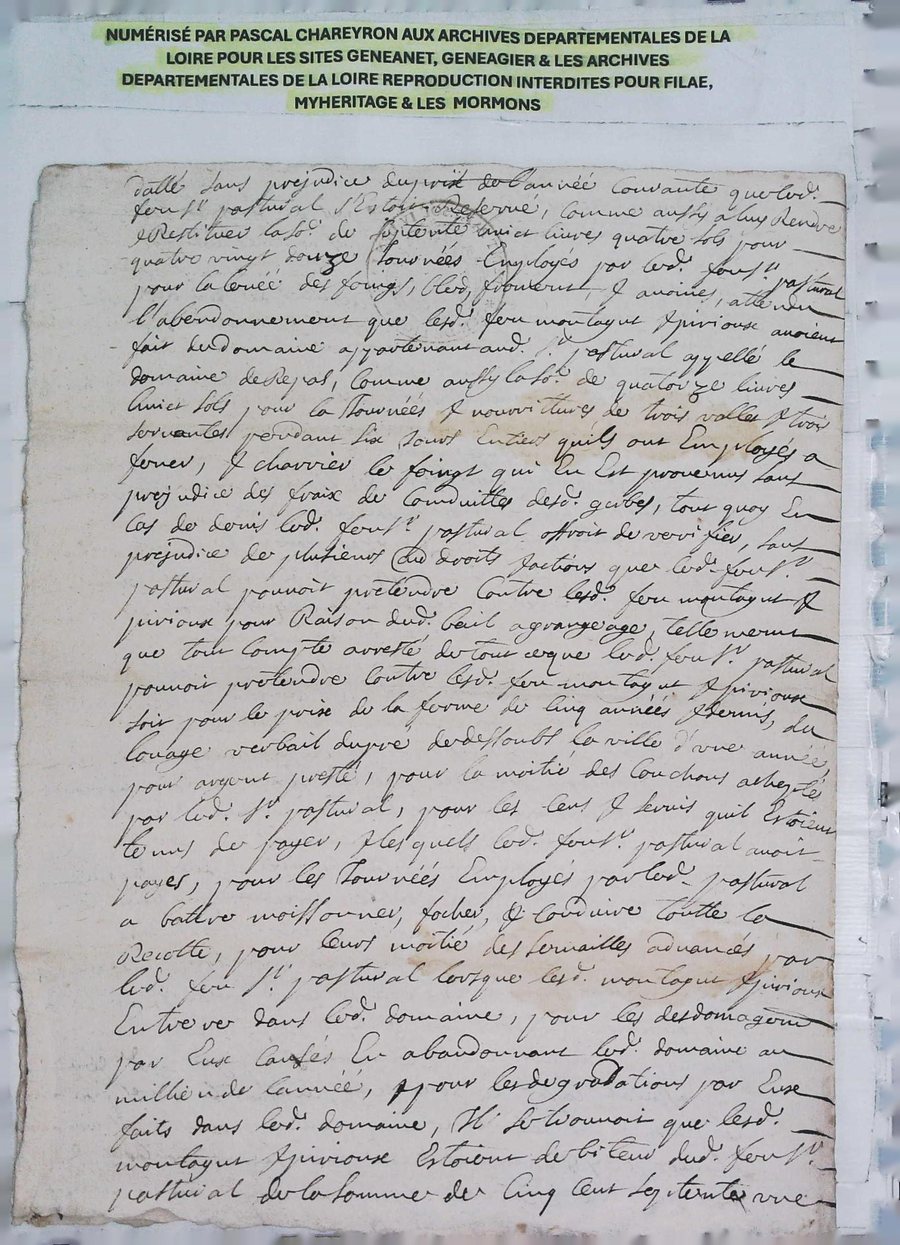 NUMÉRISÉ PAR PASCAL CHAREYRON AUX ARCHIVES DEPARTEMENTALES DE LA
LOIRE POUR LES SITES GENEANET, GENEAGIER & LES ARCHIVES
DEPARTEMENTALES DE LA LOIRE REPRODUCTION INTERDITES POUR FILAE,
MYHERITAGE & LES MORMONS
datté sans prejudice du prix de l'année Courante que led.
feu Sr. pastural s'Estoit Reservé, Comme aussy a luy Rendre
& Restituer la so. de septente huict livres quatre sols pour
quatre vingt douze Journées Employés par led. feu Sr. pastural
pour la levée des foings, bled, froment, & avoines, attendu
l'abendonnement que lesd. feu montagut & pirioux avoient
fait du domaine appartenant aud. Sr. pastural appellé le
domaine de Repas, Comme aussy la so. de quatorze livres
huict sols pour la Journées & nourritures de trois valles & trois
servantes pendant six Jours Entiers qu'ils ont Employés a
fener, & charrier le foingt qui En Est provenus sans
prejudice des fraix de Conduittes desd. gerbes, tout quoy En
Cas de denis led. feu Sr. pastural offroit de veriffier, sans
prejudice de plusieurs droits & actions que led. feu Sr.
pastural pouvoit pretendre Contre lesd. feu montagut &
pirioux pour Raison dud. bail a grangeage, tellement
que tout Compte arresté de tout ce que led. feu Sr. pastural
pouvoit pretendre Contre lesd. feu montagut & pirioux
soit pour le prix de la ferme de Cinq années & demis, du
louage verbail du pré de dessoubt la ville d'une année,
pour argent presté, pour la moitié des Couchons acheptés
par led. Sr. pastural, pour les Cens & servis qu'il Estoient
tenus de payer, & lesquels led. feu Sr. pastural avoit
payes, pour les Journéés Employés par led. pastural
a battre moissonner, focher, & Conduire toutte la
Recolte, pour leurs moitié des semailles advancés par
led. feu Sr. pastural lorsque lesd. montagut & pirioux
Entrerer dans led. domaine, pour les desdomagem
par Eux Causés En abandonnant led. domaine au
millieu de l'année, & pour les degradations par Eux
faits dans led. domaine, Il se trouvoit que lesd.
montagut & pirioux Estoient debiteur dud. feu Sr.
pastural de la somme de Cinq Cent septente une